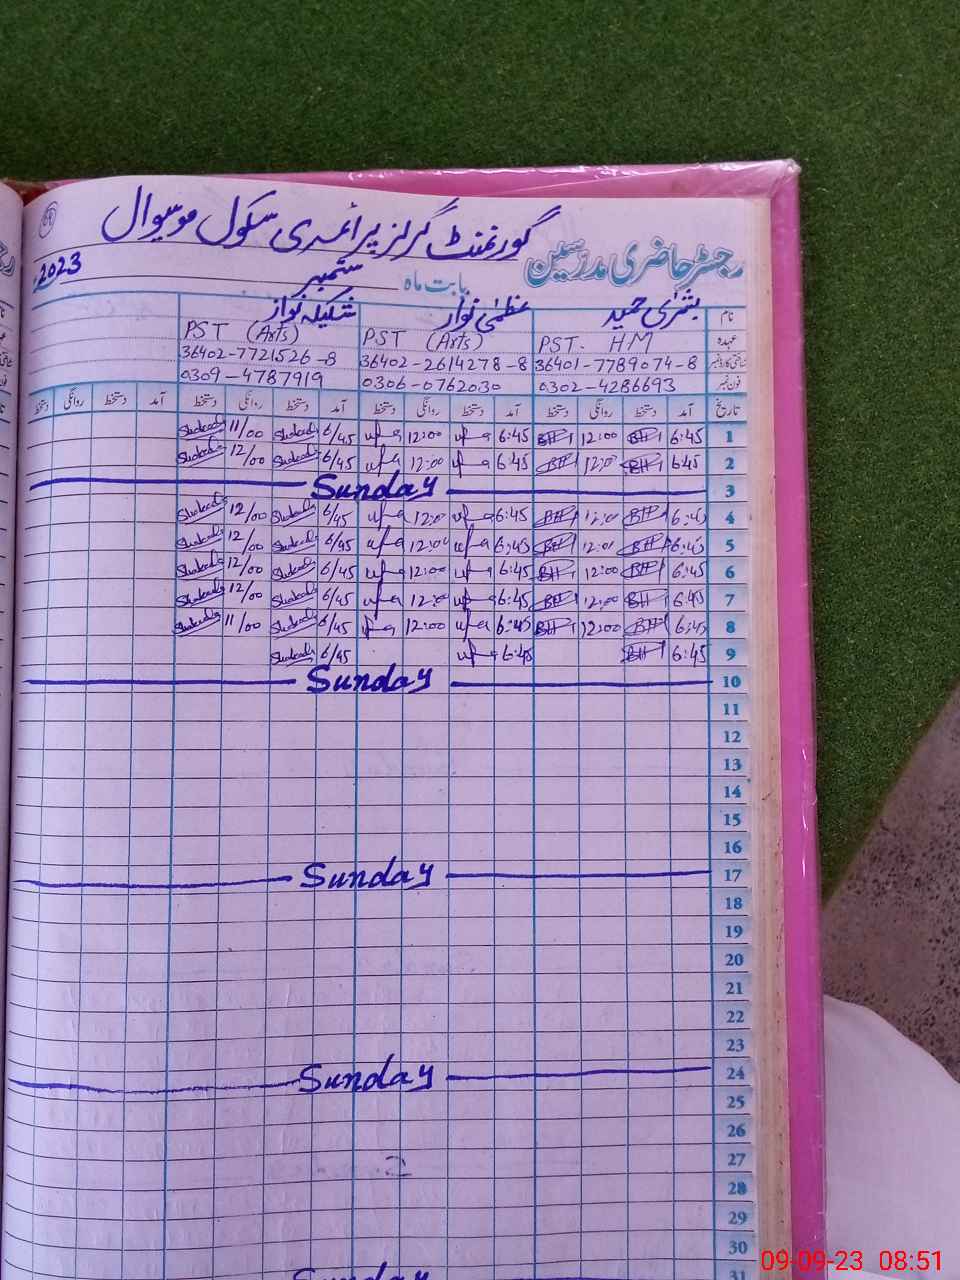 گورنمنٹ گرلز پرائمری سکول موسیوال
رجسٹر حاضری مدرسین
بابت ماہ ستمبر 2023
نام بشریٰ حمید عظمیٰ نواز شکیلہ نواز
عہدہ PST. HM PST (Arts) PST (Arts)
36401-7789074-8 36402-2614278-8 36402-7721526-8
فون نمبر 0302-4286693 0306-0762030 0309-4787919
تاریخ آمد دستخط روانگی دستخط آمد دستخط روانگی دستخط آمد دستخط روانگی دستخط آمد دستخط روانگی دستخط
1 6:45 BH 12:00 BH 6:45 12:00 6/45 11/00
2 6:45 BH 12:00 BH 6:45 12:00 6/45 12/00
3 Sunday
4 6:45 BH 12:00 BH 6:45 12:00 6/45 12/00
5 6:45 BH 12:00 BH 6:45 12:00 6/45 12/00
6 6:45 BH 12:00 BH 6:45 12:00 6/45 12/00
7 6:45 BH 12:00 BH 6:45 12:00 6/45 12/00
8 6:45 BH 12:00 BH 6:45 12:00 6/45 11/00
9 6:45 BH 6:45 6/45
10 Sunday
11
12
13
14
15
16
17 Sunday
18
19
20
21
22
23
24 Sunday
25
26
27
28
29
30
31 Sunday
09-09-23 08:51